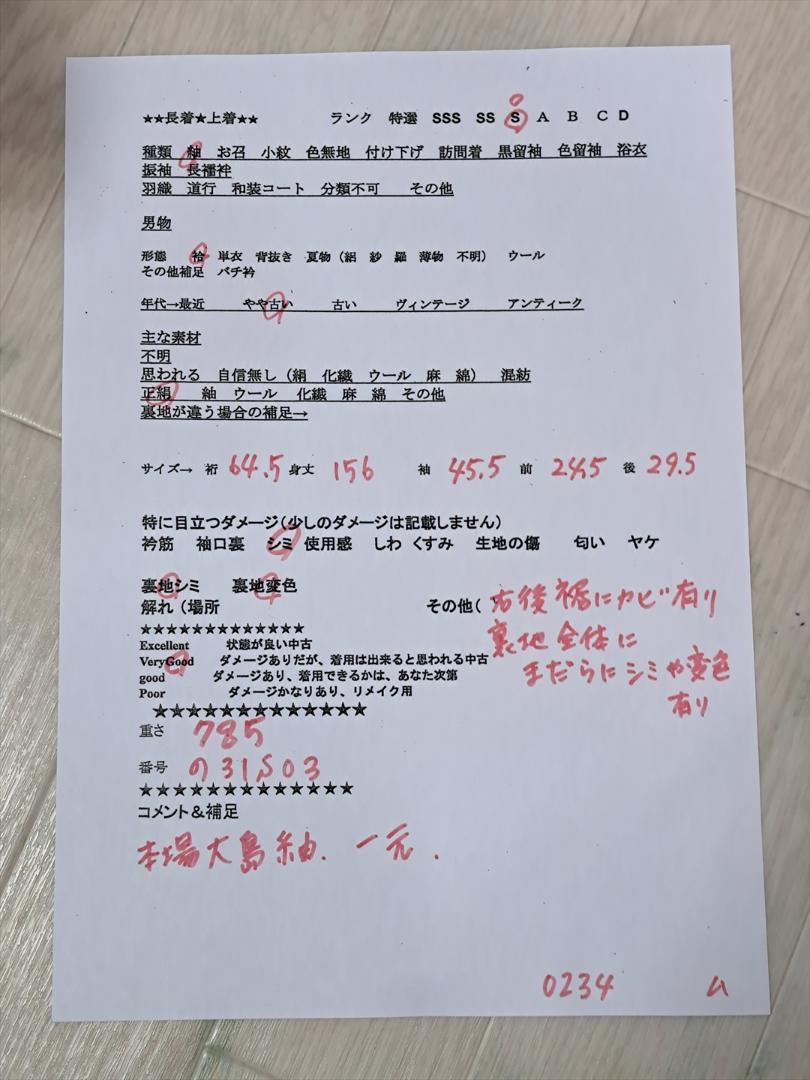 ★★長着★上着★★　ランク　特選　SSS　SS　S　A　B　C　D
種類　紬　お召　小紋　色無地　付け下げ　訪問着　黒留袖　色留袖　浴衣
振袖　長襦袢
羽織　道行　和装コート　分類不可　その他
男物
形態　袷　単衣　背抜き　夏物（絽　紗　羅　薄物　不明）　ウール
その他補足　バチ衿
年代→最近　やや古い　古い　ヴィンテージ　アンティーク
主な素材
不明
思われる　自信無し（絹　化繊　ウール　麻　綿）　混紡
正絹　紬　ウール　化繊　麻　綿　その他
裏地が違う場合の補足→
サイズ→　裄　64.5　身丈　156　袖　45.5　前　24.5　後　29.5
特に目立つダメージ（少しのダメージは記載しません）
衿筋　袖口裏　シミ　使用感　しわ　くすみ　生地の傷　匂い　ヤケ
裏地シミ　裏地変色
解れ（場所　その他（　右後裾にカビ有り
裏地全体に
まだらにシミや変色
有り
★★★★★★★★★★★★★
Excellent　状態が良い中古
VeryGood　ダメージありだが、着用は出来ると思われる中古
good　ダメージあり、着用できるかは、あなた次第
Poor　ダメージかなりあり、リメイク用
★★★★★★★★★★★★★
重さ　785
番号　の31S03
★★★★★★★★★★★★★
コメント＆補足
本場大島紬.　一元.
0234　ム